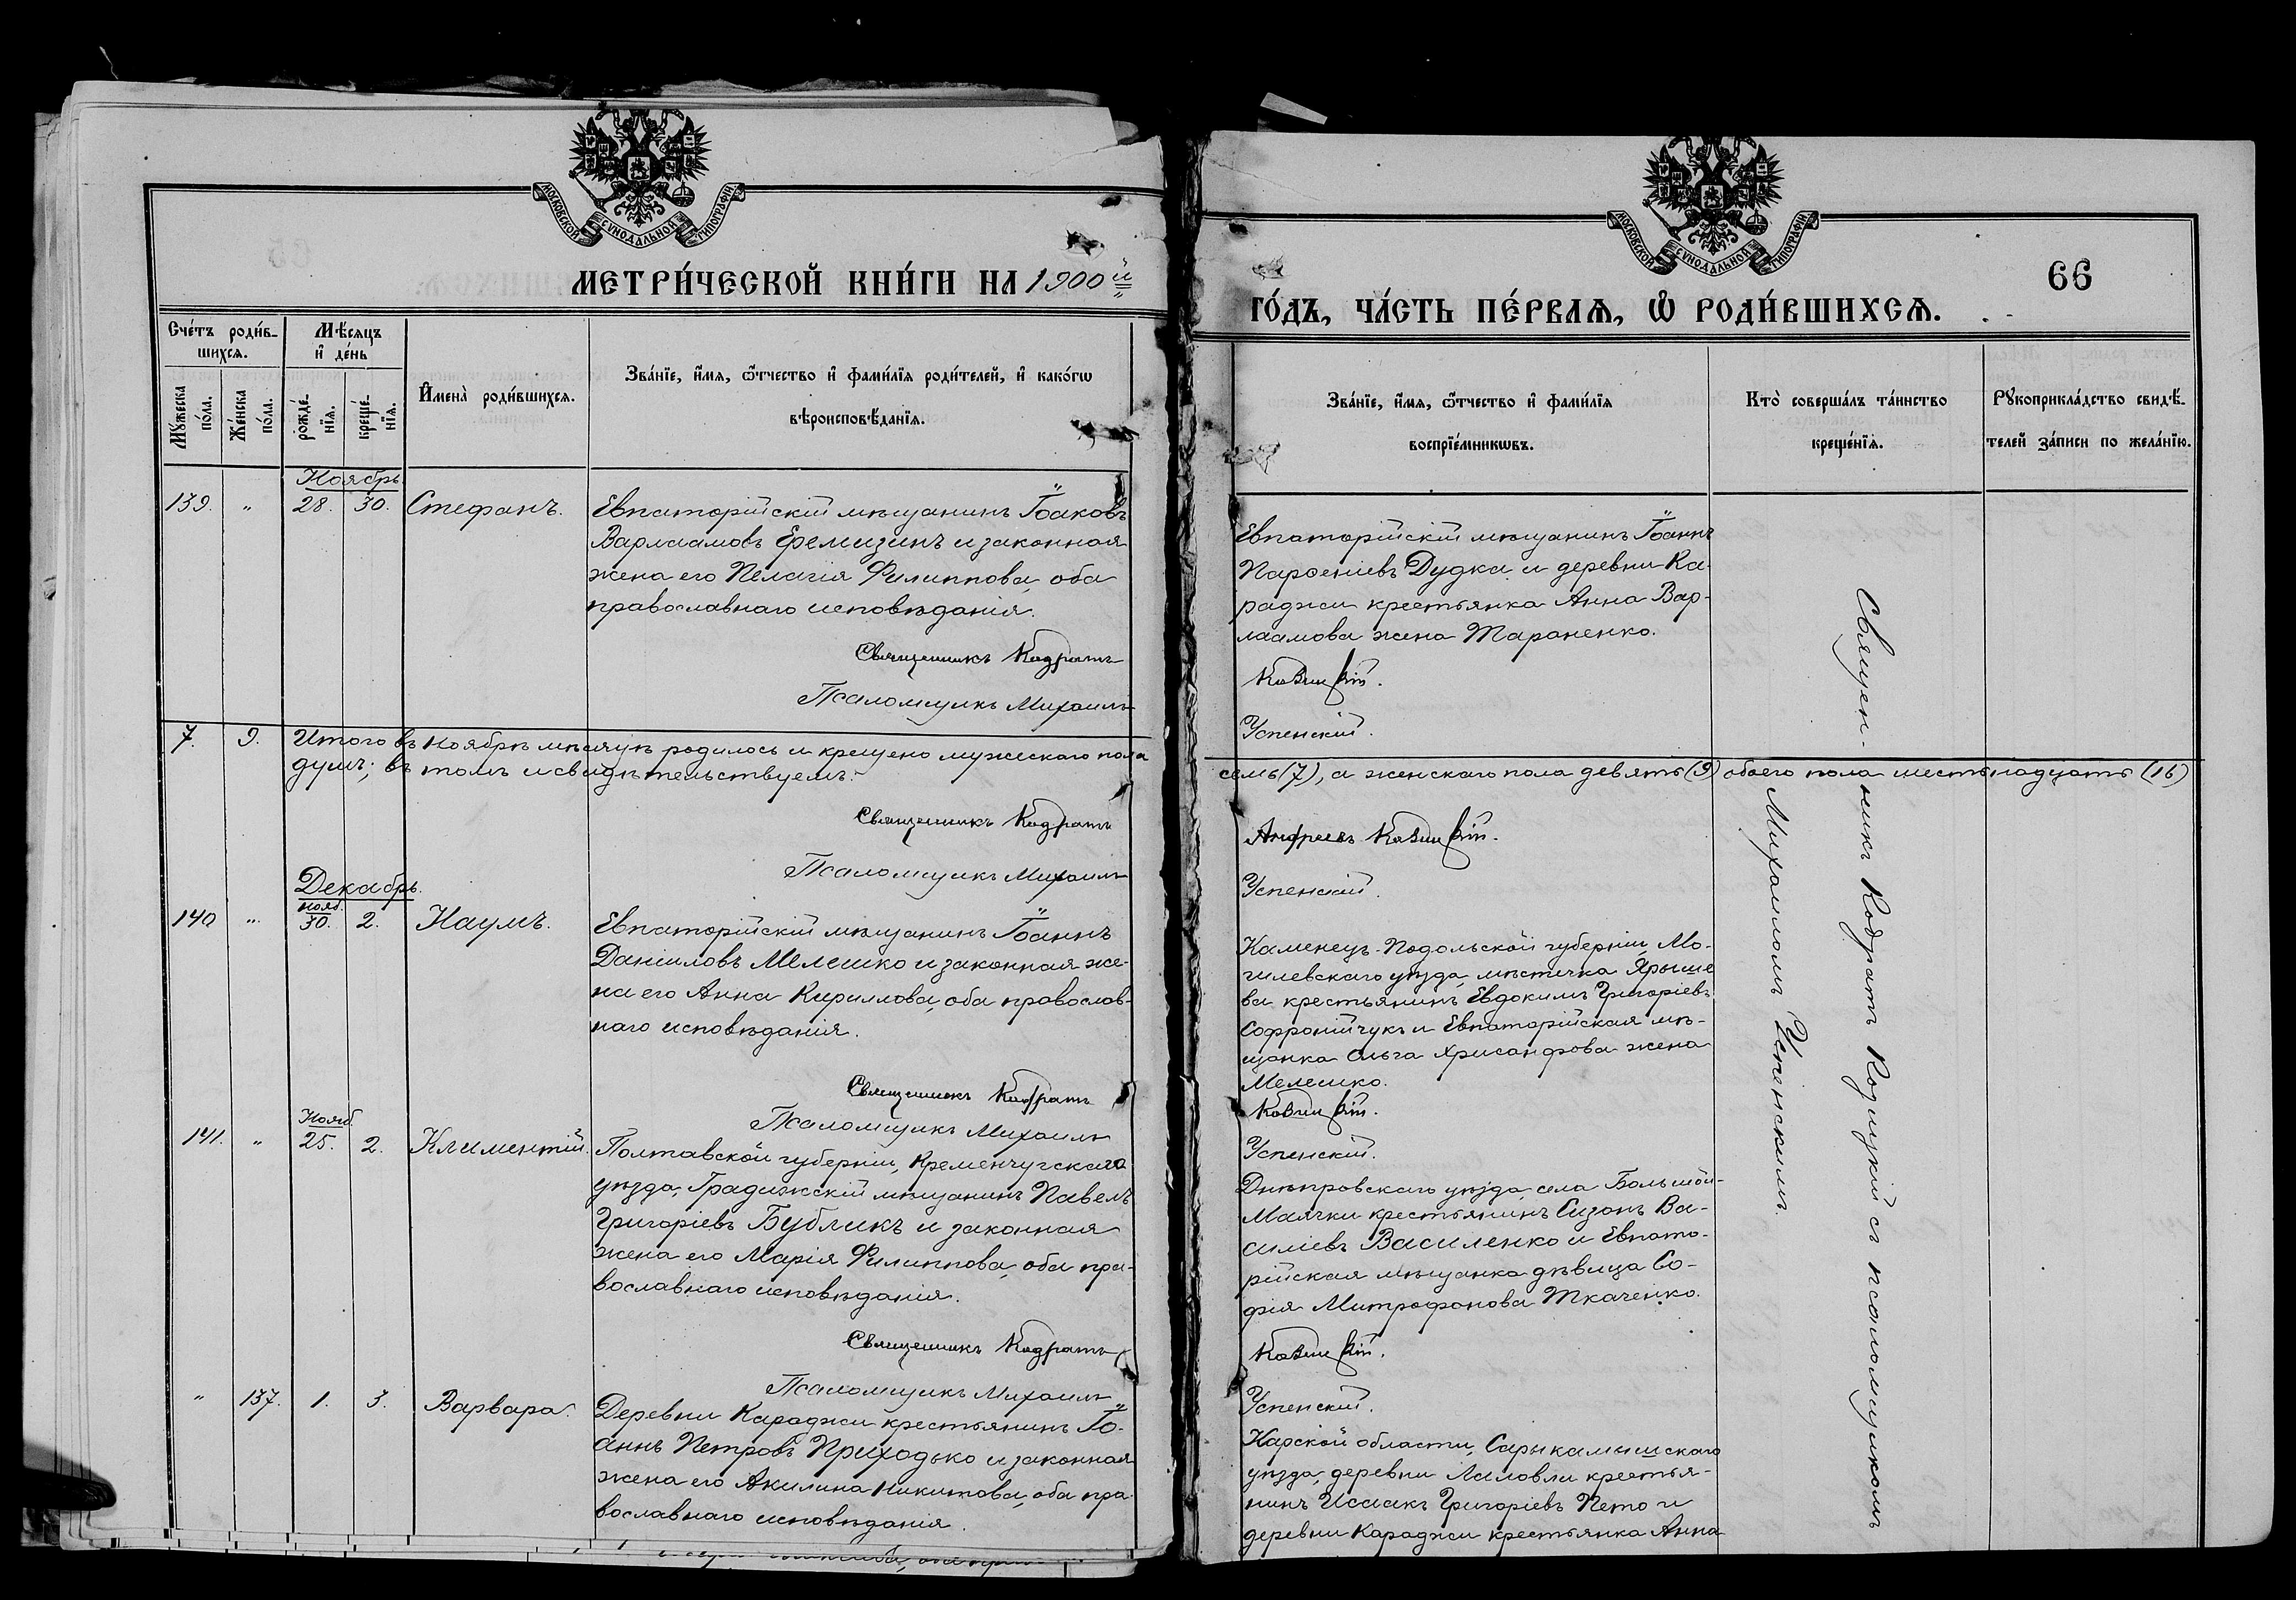 МОСКОВСКОЙ СѴНОДАЛЬНОЙ ТИПОГРАФІИ
МЕТРИ́ЧЕСКОЙ КНИ́ГИ НА 1900й
Сче́тъ роди́в-
шихсѧ.
Мѣ́сѧцъ
и҆ де́нь
Мꙋ́жеска
по́ла.
Же́нска
по́ла.
рожде́-
нїѧ.
креще́-
нїѧ.
И҆мена̀ роди́вшихсѧ.
Зва́нїе, и҆́мѧ, ѻ҆́тчество и҆ фами́лїѧ роди́телей, и҆ како́гѡ
вѣроисповѣ́данїѧ.
Ноябрь.
139. „ 28. 30. Стефанъ.
Евпаторійскій мѣщанинъ Іоаковъ
Варлаамовъ Еремизинъ и законная
жена его Пелагія Филиппова, оба
православнаго исповѣданія.
Священникъ Кодратъ
Псаломщикъ Михаилъ
7. 9. Итого въ ноябрѣ мѣсяцѣ родилось и крещено мужескаго пола
душъ; въ томъ и свидѣтельствуемъ:
Священникъ Кодратъ
Псаломщикъ Михаилъ
Декабрь.
140 „ нояб. 30. 2. Наумъ.
Евпаторійскій мѣщанинъ Іоаннъ
Даніиловъ Мелешко и законная же-
на его Анна Кириллова, оба православ-
наго исповѣданія.
Священникъ Кодратъ
Псаломщикъ Михаилъ
141. „ Нояб. 25. 2. Климентій.
Полтавской губерніи, Кременчугскаго
уѣзда, Градижскій мѣщанинъ Павелъ
Григоріевъ Бубликъ и законная
жена его Марія Филиппова, оба пра-
вославнаго исповѣданія.
Священникъ Кодратъ
Псаломщикъ Михаилъ
„ 137. 1. 3. Варвара.
Деревни Караджи крестьянинъ Іо-
аннъ Петровъ Приходько и законная
жена его Акилина Никитова, оба пра-
вославнаго исповѣданія.
МОСКОВСКОЙ СѴНОДАЛЬНОЙ ТИПОГРАФІИ
66
ГО́ДЪ, ЧА́СТЬ ПЕ́РВАѦ, Ѡ҆ РОДИ́ВШИХСѦ.
Зва́нїе, и҆́мѧ, ѻ҆́тчество и҆ фами́лїѧ
воспрїе́мникѡвъ.
Кто̀ соверша́лъ та́инство
креще́нїѧ.
Рꙋкоприкла́дство свидѣ́-
телей за́писи по жела́нїю.
Евпаторійскій мѣщанинъ Іоаннъ
Парѳеніевъ Дудка и деревни Ка-
раджи крестьянка Анна Вар-
лаамова жена Тараненко.
Козицкій.
Успенскій.
семь (7), а женскаго пола девять (9) обоего пола шестьнадцать (16)
Андреевъ Козицкій.
Успенскій.
Каменецъ-Подольской губерніи, Мо-
гилевскаго уѣзда, мѣстечка Ярыше
ва крестьянинъ Евдокимъ Григоріевъ
Софронійчукъ и Евпаторійская мѣ-
щанка Ольга Хрисанфова жена
Мелешко.
Козицкій.
Успенскій.
Днѣпровскаго уѣзда, села Большой-
Маячки крестьянинъ Сизонъ Ва-
силіевъ Василенко и Евпато-
рійская мѣщанка дѣвица Со-
фія Митрофанова Ткаченко.
Козицкій.
Успенскій.
Карской области, Сарыкамышскаго
уѣзда, деревни Лаловли крестья-
нинъ Исаакъ Григоріевъ Пето и
деревни Караджи крестьянка Анна
Священ-
никъ Кодратъ Козицкій съ псаломщикомъ
Михаиломъ Успенскимъ.